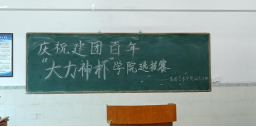 庆祝建团百年
“大力神杯”学院选拔赛